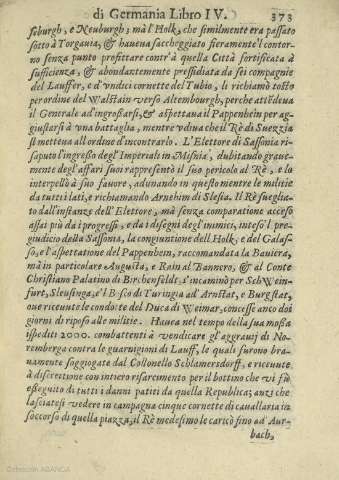 di Germania Libro IV. 373
siburgh, e Neuburgh; mà l'Holk, che similmente era passato
sotto à Torgauia, & haueua saccheggiato fieramente l'contor-
no senza punto profittare contr'à quella Città fortificata à
sufficienza, & abondantemente pressidiata da sei compagnie
del Lauffer, e d'vndici cornette del Tubio, li richiamò tosto
per ordine del Walstain verso Altembourgh, perche attēdeua
il Generale ad'ingrossarsi, & aspettaua il Pappenhein per ag-
giustarsi à vna battaglia, mentre vdiua che il Rè di Suezzia
si metteua all'ordine d'incontrarlo. L'Elettore di Sassonia ri-
saputo l'ingresso degl'Imperiali in Misnia, dubitando graue-
mente degl'affari suoi rappresentò il suo pericolo al Rè, e lo
interpellò à suo fauore, adunando in questo mentre le militie
da tutti i lati, e richiamando Arnehim di Slesia. Il Rè sueglia-
to dall'instanze dell'Elettore, mà senza comparatione acceso
assai più da i progressi, e da i disegni degl'inimici, inteso'l pre-
giudicio della Sassonia, la congiuntione dell'Holk, e del Galas-
so, e l'aspettatione del Pappenhein, raccomandata la Bauiera,
mà in particolare Augusta, e Rain al Bannero, & al Conte
Christiano Palatino di Birchenfeldt s'incaminò per Schwein-
furt, Sleusinga, e'l Bosco di Turingia ad Arnstat, e Burgstat,
oue riceuute le condotte del Duca di Weimar, concesse anco doi
giorni di riposo alle militie. Haura nel tempo della sua mossa
ispediti 2000. combattenti à vendicare gl'aggrauij di No-
remberga contro le guarnigioni di Lauff, le quali furono bra-
uamente soggiogate dal Collonello Schlamersdorff, e riceuute
à discrettione con intiero risarcimento per il bottino che vi fù
esseguito di tutti i danni patiti da quella Republica; anzi che
lasciatesi vedere in campagna cinque cornette di cauallaria in
soccorso di quella piazza, il Rè medesimo le caricò fino ad Aur-
bach,
Colección ABANCA